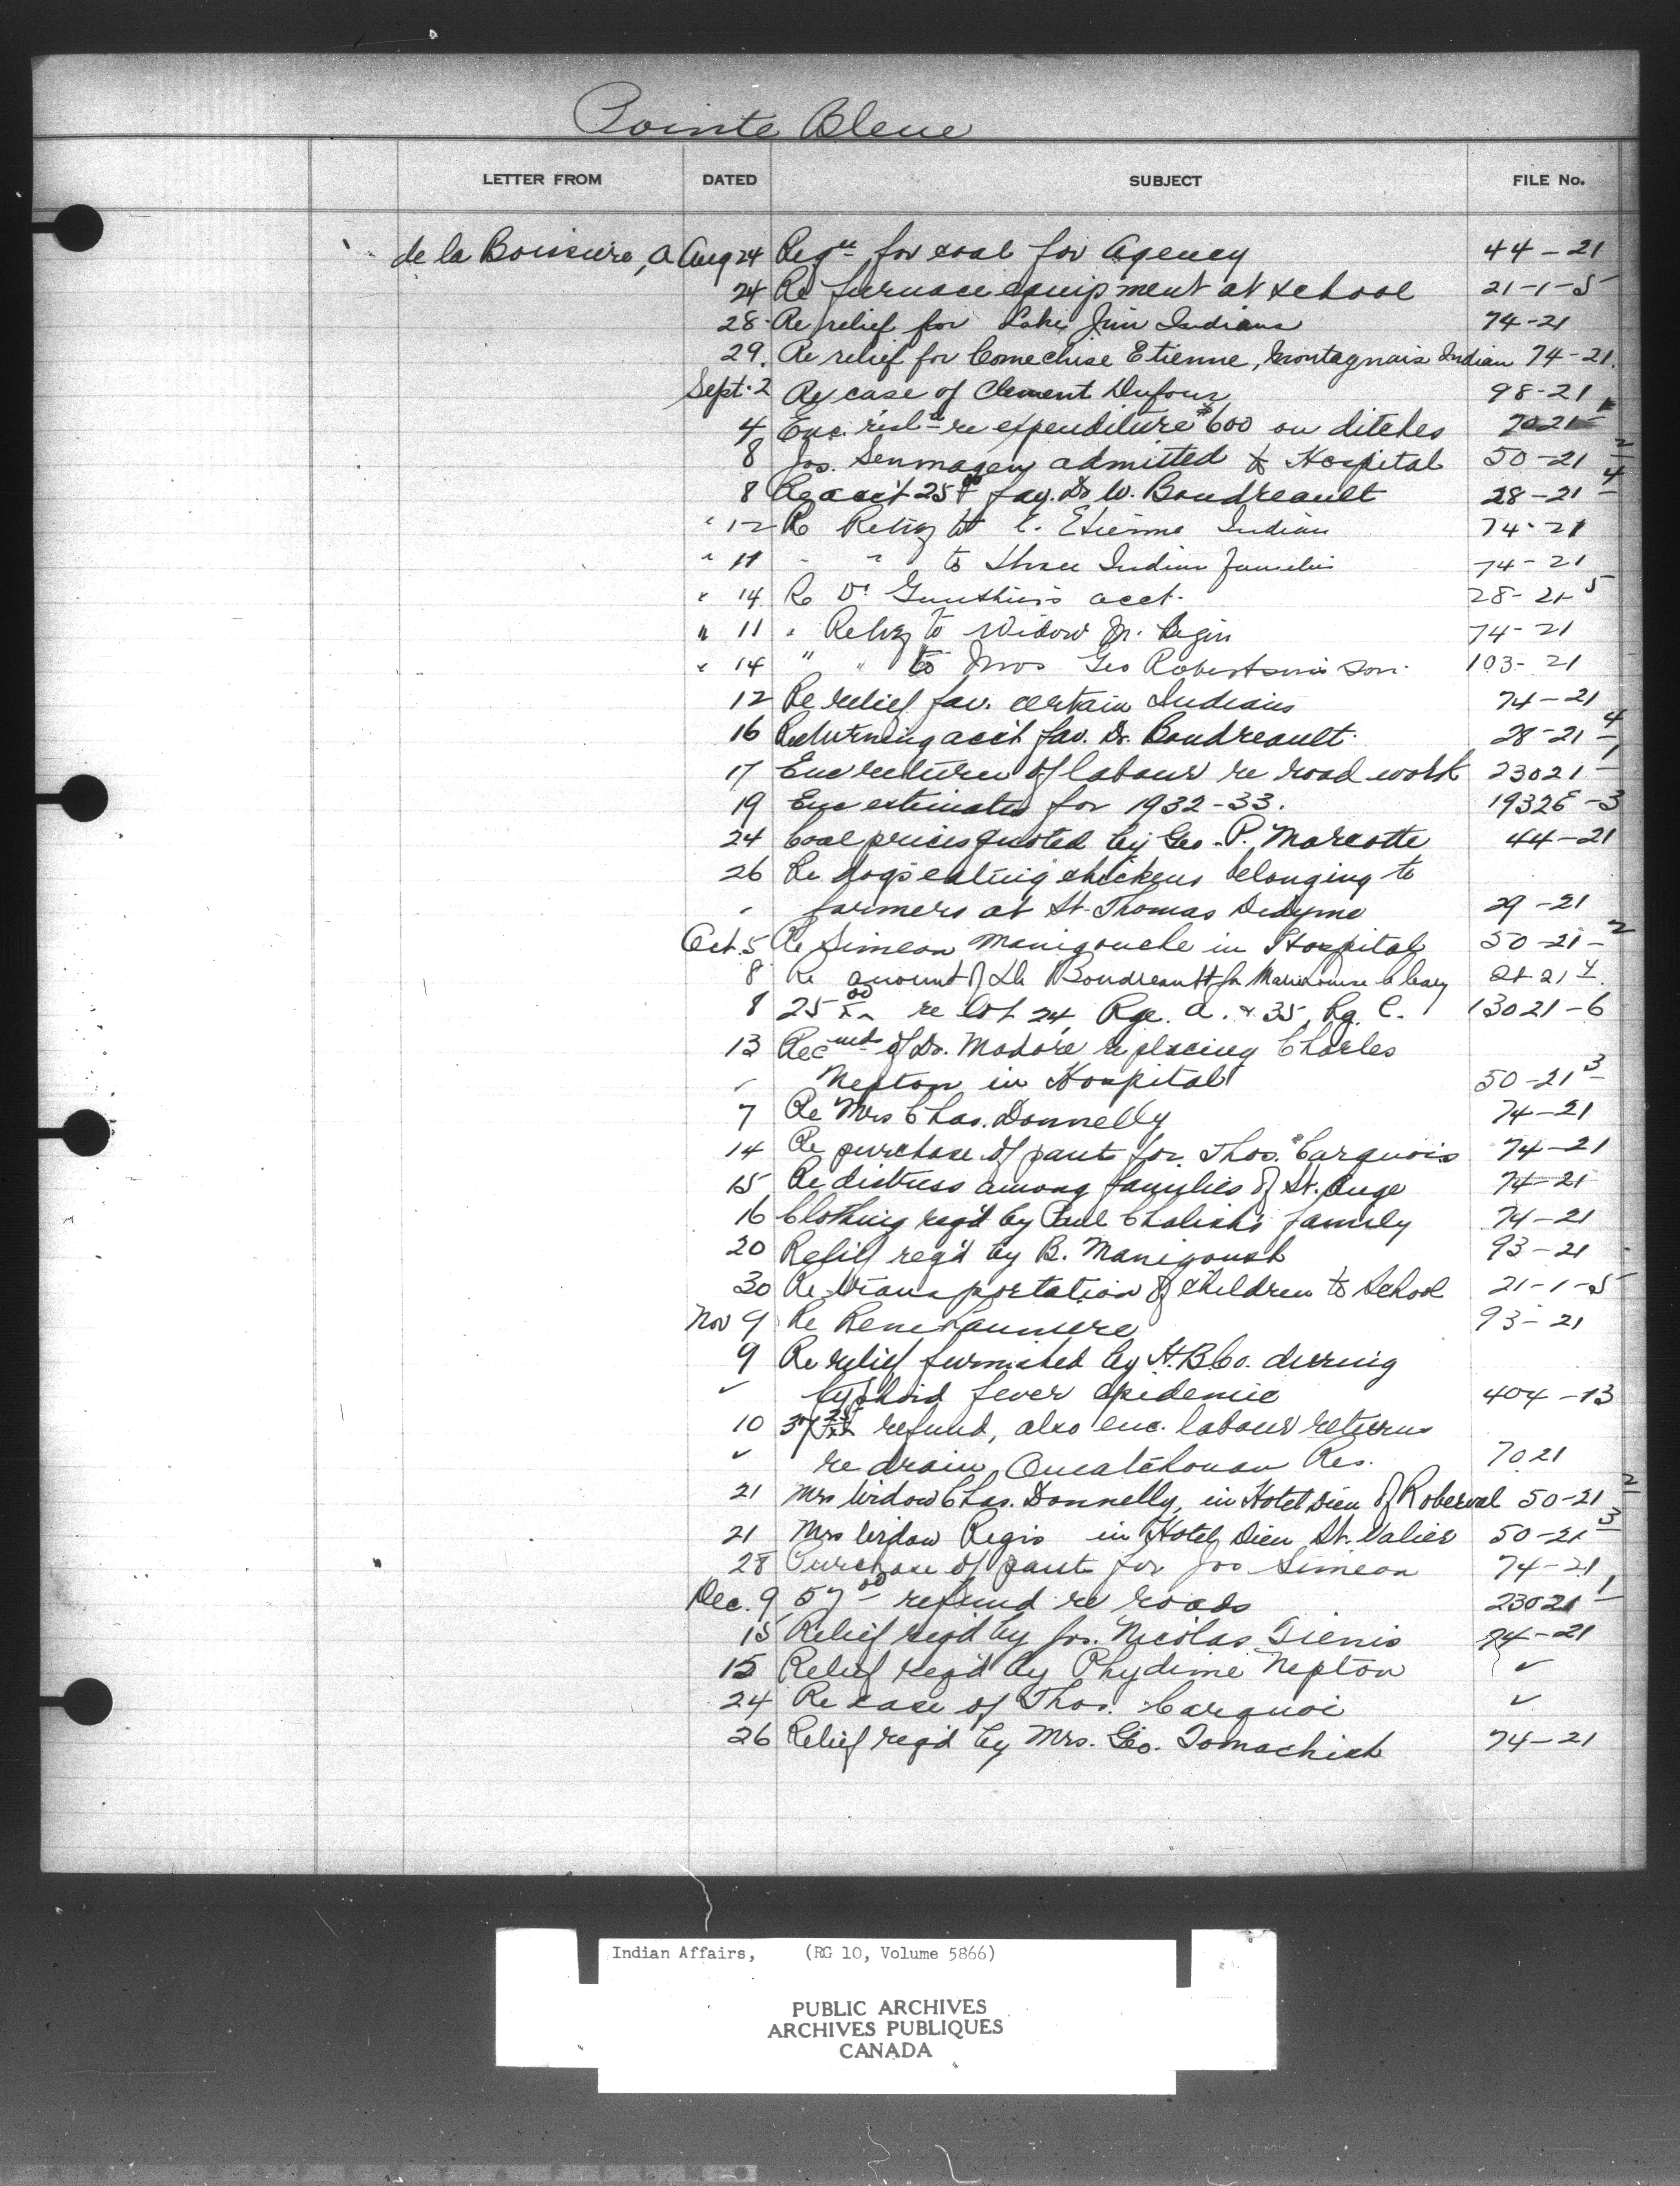 Pointe Bleue
LETTER FROM DATED SUBJECT FILE No.
de la Boissiere, A Aug 24 Reqn for coal for Agency 44-21
24 Re furnace equipment at school 21-1-5
28 Re relief for Lake Jim Indians 74-21
29. Re relief for Comechise Etienne, Montagnais Indian 74-21.
Sept. 2 Re case of Clement Dufour 98-21
4 Enc. re expenditure $600 on ditches 7021-1
8 Jos. admitted to Hospital 50-21-2
8 Re acct 25.00 fav. Dr W. Boudreault 28-21-4
" 12 Re Relief to E. Etienne Indian 74-21
" 11 " " to three Indian families 74-21
" 14 Re Dr Gauthier's acct. 28-21-5
" 11 " Relief to Widow Jn. Regis 74-21
" 14 " " to Mrs Geo Robertson's son 103-21
12 Re relief fav. certain Indians 74-21
16 Returning acct fav. Dr. Boudreault. 28-21-4
17 Enc return of labour re road work 23021-1
19 Enc estimates for 1932-33. 1932E-3
24 Coal prices quoted by Geo. P. Marcotte 44-21
26 Re dogs eating chickens belonging to
" farmers at St. Thomas Didyme 29-21
Oct. 5 Re Simeon Manigouche in Hospital 50-21-2
8 Re amount of Dr Boudreault for Marie Louise Cleary 28-21-4
8 25.00 re lot 24, Rge. A. & 35, Rg. C. 13021-6
13 Recmd of Dr. Modore replacing Charles
" Nepton in Hospital 50-21-3
7 Re Mrs Chas. Donnelly 74-21
14 Re purchase of pant for Thos. Carquois 74-21
15 Re distress among families of St. Ange 74-21
16 Clothing reqd by Paul Chalish's family 74-21
20 Relief req'd by B. Manigoush 93-21
30 Re transportation of children to School 21-1-5
Nov 9 Re Rene 93-21
9 Re relief furnished by H.B.Co. during
" typhoid fever epidemic 404-13
10 refund, also enc. labour returns
" re drain, Ouiatchouan Res. 7021
21 Mrs Widow Chas. Donnelly, in Hotel Dieu of Roberval 50-21-2
21 Mrs Widow Regis in Hotel Dieu St. Valier 50-21-3
28 Purchase of pant for Jos Simeon 74-21
Dec. 9 57.00 refund re roads 23021-1
15 Relief reqd by Jos. Nicolas Sienis 74-21
15 Relief reqd by Phydime Nepton ✓
24 Re case of Thos. Carquoi ✓
26 Relief reqd by Mrs. Geo. Tomachish 74-21
Indian Affairs, (RG 10, Volume 5866)
PUBLIC ARCHIVES
ARCHIVES PUBLIQUES
CANADA